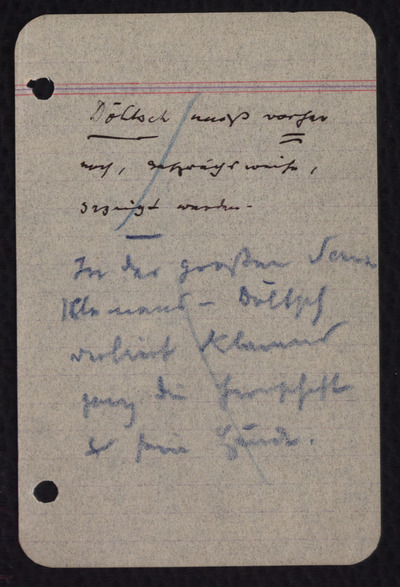 Döltsch muß vorher
noch, gesprächsweise,
gezeigt werden.
In der großen Scene
Klemens – Döltsch
verliert Klemens
ganz die Herrschaft
üb seine Hände.